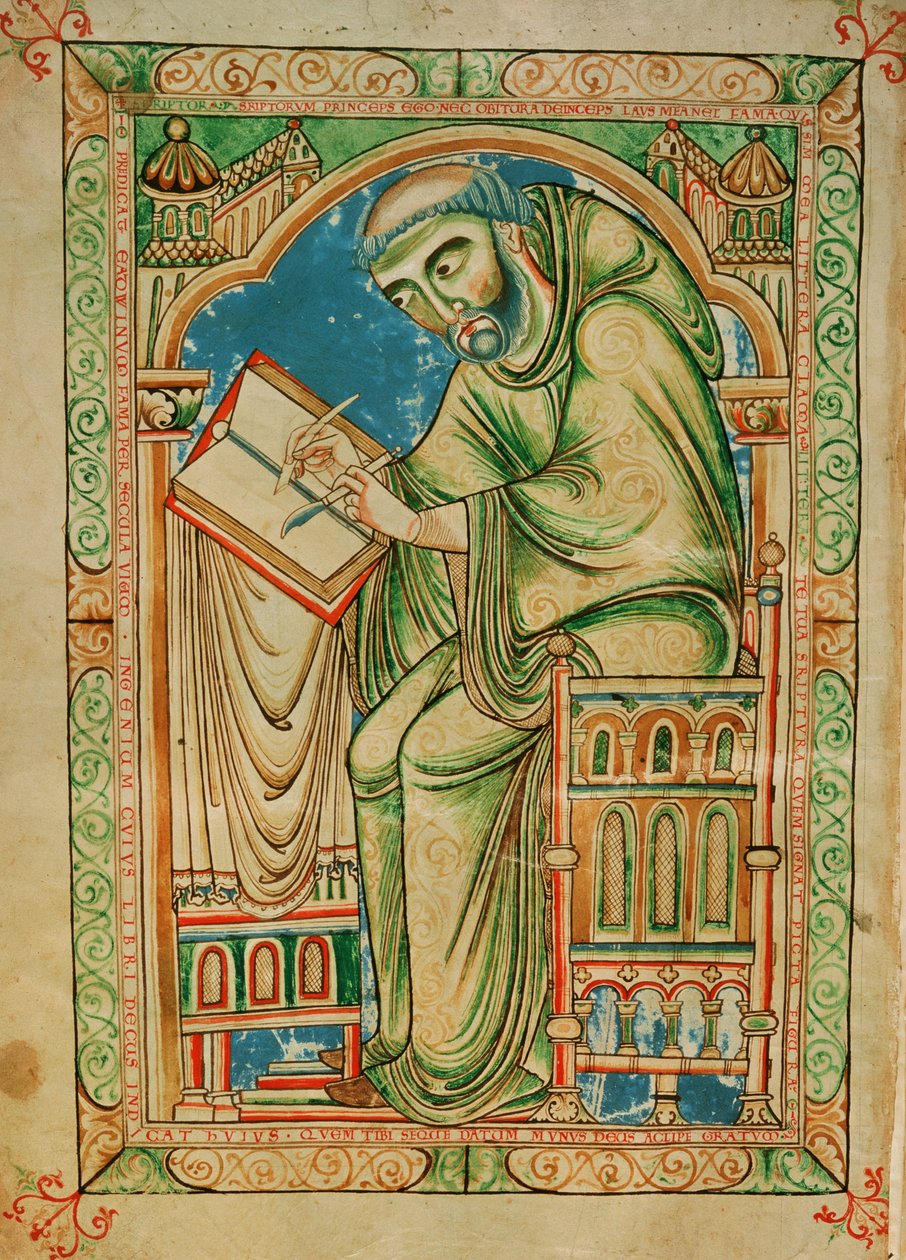 SCRIPTOR SRIPTORVM PRINCEPS EGO·NEC OBITVRA DEINCEPS LAVS MEA NEC FAMA·QVIS
SIM MEA LITTERA CLAMA·LITTERA· TE TVA SRIPTVRA QVEM SIGNAT PICTA FIGVRA
PREDICAT EADWINVM FAMA PER SECVLA VIVVM · INGENIVM CVIVS LIBRI DECUS IND
ICAT HVIVS · QVEM TIBI SEQVE DATVM MVNVS DEUS ACCIPE GRATVM